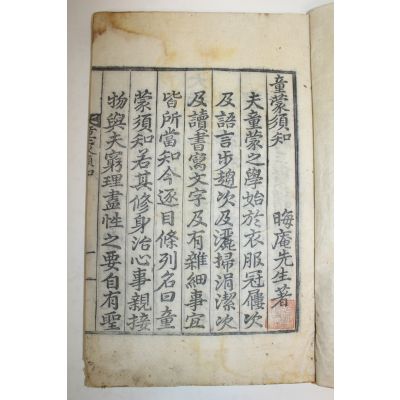 童蒙須知
晦庵先生著
夫童蒙之學始於衣服冠屨次
及語言步趨次及灑掃涓潔次
及讀書寫文字及有雜細事宜
皆所當知今逐目條列名曰童
蒙須知若其修身治心事親接
物與夫窮理盡性之要自有聖
童蒙須知
一